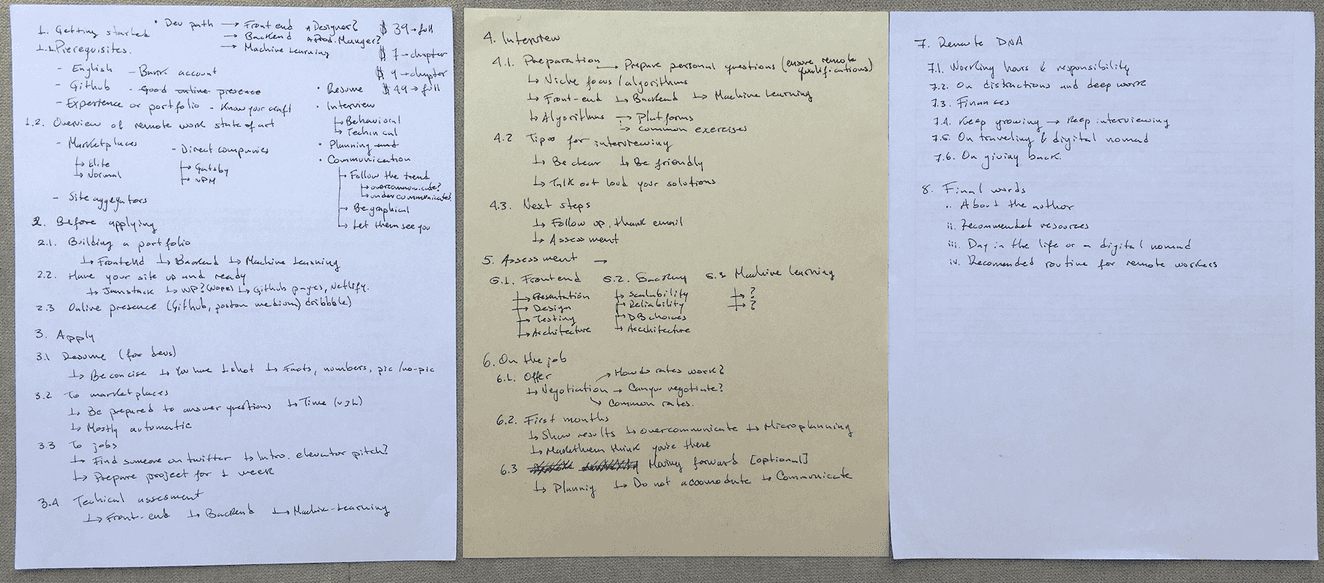 1. Getting started
1.1. Prerequisites.
- English - Bank account
- Github - Good online presence
- Experience or portfolio - Know your craft
1.2. Overview of remote work state of art
- Marketplaces - Direct companies
↳ Elite ↳ Gatsby
↳ Normal ↳ NPM
- Site aggregators
• Dev path → Front end *Designer?
→ Backend
→ Machine Learning
$ 39 → full
$ 7 → chapter
$ 9 → chapter
$ 49 → full
• Resume
• Interview
↳ Behavioral
↳ Technical
• Planning
• Communication
↳ Follow the trend
↳ overcommunicate?
↳ undercommunicate?
↳ Be graphical
↳ Let them see you
2. Before applying
2.1. Building a portfolio
↳ Frontend ↳ Backend ↳ Machine Learning
2.2. Have your site up and ready
↳ Jamstack ↳ WP? ↳ Github pages, Netlify.
2.3 Online presence (Github, medium, dribbble)
3. Apply
3.1 Resume (for devs)
↳ Be concise ↳ You have 1 shot ↳ Facts, numbers, pic/no-pic
3.2 To marketplaces
↳ Be prepared to answer questions ↳ Time
↳ Mostly automatic
3.3 To jobs
↳ Find someone on twitter ↳ Intro. elevator pitch?
↳ Prepare project for 1 week
3.4 Techical assesment
↳ Front-end ↳ Backend ↳ Machine-Learning
4. Interview
4.1. Preparation → Prepare personal questions (ensure remote qualifications)
↳ Niche focus/algorithms
↳ Front-end ↳ Backend ↳ Machine Learning
↳ Algorithms → Platforms
→ common exercises
4.2 Tips for interviewing
↳ Be clear ↳ Be friendly
↳ Talk out loud your solutions
4.3. Next steps
↳ Follow up, thank email
↳ Assessment
5. Assessment →
5.1. Frontend 5.2. Backend 5.3 Machine learning
↳ Presentation ↳ Scalability ↳ ?
↳ Design ↳ Reliability ↳ ?
↳ Testing ↳ DB choices
↳ Architecture ↳ Architecture
6. On the job
6.1. Offer
↳ Negotiation → How do rates work?
→ Can you negotiate?
→ Common rates.
6.2. First months
↳ Show results ↳ overcommunicate ↳ Microplanning
↳ Make them think you're there
6.3 Moving forward [optional]
↳ Plannig ↳ Do not accomodate ↳ Communicate
7. Remote DNA
7.1. Working hours & responsibility
7.2. On distractions and deep work
7.3. Finances
7.4. Keep growing → Keep interviewing
7.5. On traveling & digital nomad
7.6. On giving back.
8. Final words
i. About the author
ii. Recommended resources
iii. Day in the life of a digital nomad
iv. Recomended routine for remote workers